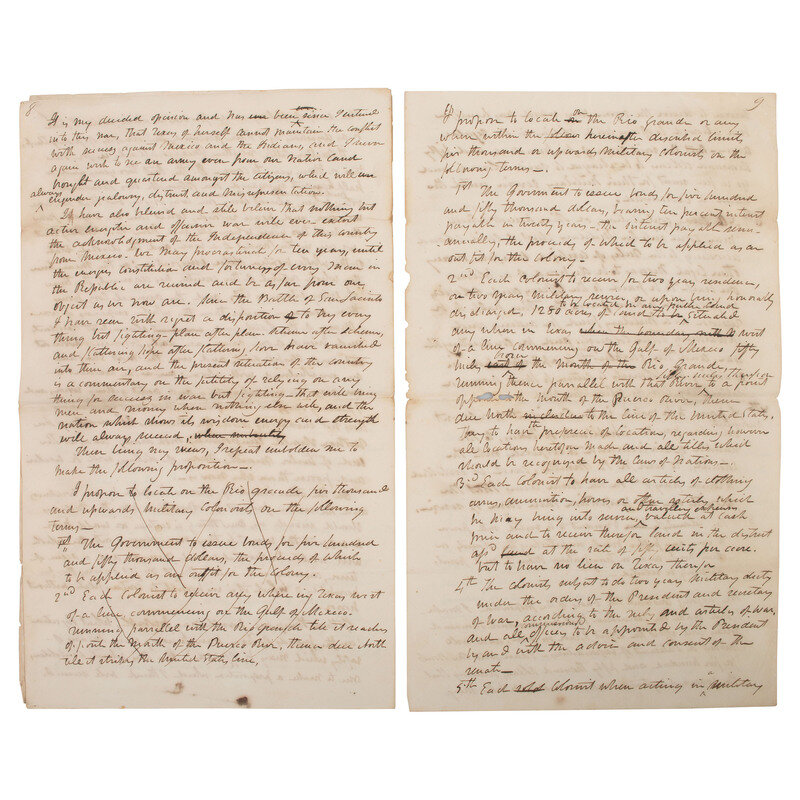 8
It is my decided opinion and has been since I entered
into this war, that Texas of herself cannot maintain the conflict
with success against Mexico and the Indians, and I never
again wish to see an army even from our native land
brought and quartered amongst the citizens, which will
always
engender jealousy, distrust, and misrepresentation.
I have also believed and still believe that nothing but
active energetic and offensive war will ever extort
the acknowledgment of the Independence of this country
from Mexico. We may procrastinate for ten years, until
the energies constitution and fortunes of every man in
the Republic are ruined and be as far from our
object as we now are. Since the Battle of San Jacinto
I have seen with regret a disposition to try every
thing but fighting. plan after plan. scheme after scheme,
and flattering hope after flattering hope have vanished
into thin air, and the present situation of the country
is a commentary on the futility of relying on any
thing for success in war but fighting. that will bring
men and money when nothing else will, and the
nation which shows its wisdom energy and strength
will always succeed,
These being my views, I repeat embolden me to
make the following proposition —.
I propose to locate on the Rio grande six thousand
and upwards Military Colonists on the following
terms —
1st The Government to issue bonds for five hundred
and fifty thousand dollars, the proceeds of which
to be applied as an outfit for the Colony.
2nd Each Colonist to receive any where in Texas west
of a line commencing on the Gulf of Mexico.
running parallel with the Rio grande till it reaches
opposite the Mouth of the Puerco River, thence due North
till it strikes the United States line,
9
I propose to locate on the Rio Grande or any
where within the hereinafter described limits,
six thousand or upwards Military Colonists on the
following terms —.
1st The Government to issue bonds for five hundred
and fifty thousand dollars, bearing ten percent interest
payable in twenty years — the interest payable semi-
annually, the proceeds of which to be applied as an
outfit for the colony —.
2nd Each Colonist to receive for two years residence,
or two years Military service, or upon being honorably
to be located on any public land
discharged, 1280 acres of land situated
any where in Texas, when the boundary west
of a line commencing on the Gulf of Mexico fifty
miles east of the mouth of the Rio Grande,
running thence parallel with that River to a point
opposite the mouth of the Puerco River, thence
due North to the line of the United States,
they to have the preference of location, regarding however
all locations heretofore made and all titles which
should be recognised by the Laws of Nations —.
3d Each Colonist to have all articles of clothing
arms, ammunition, horses or other articles, which
and traveling expenses
he may bring into service, valued at cash
price and to receive therefor land in the district
at the rate of fifty cents per acre.
but to have no lien on Texas therefor
4th The colonists subject to do two years Military duty
under the orders of the President and secretary
of War, according to the rules and articles of war,
and all officers to be appointed by the President
by and with the advice and consent of the
senate —
5th Each Colonist when acting in Military